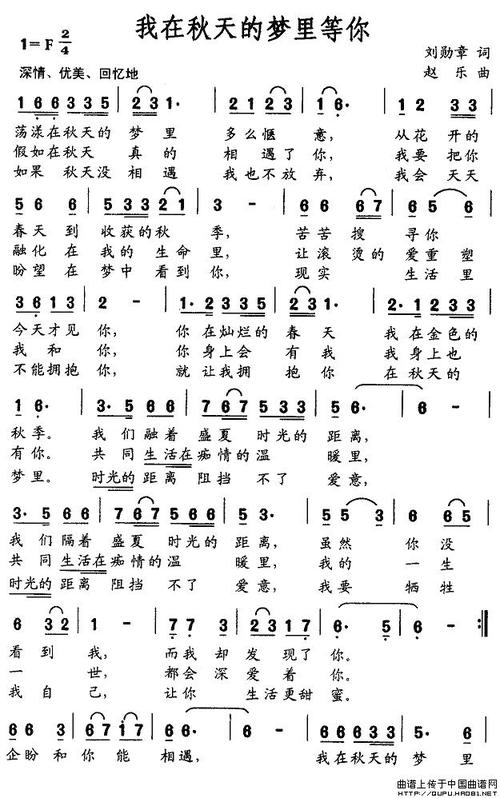 我在秋天的梦里等你
1=F 2/4
刘勋章 词
深情、优美、回忆地
赵乐 曲
1 6 6 3 3 5 | 2 3 1· | 2 1 2 3 | 1 6· | 6· 1 2 3
荡漾在秋天的 梦里 多么惬意, 从花开的
假如在秋天真的 相遇了你, 我要把你
如果秋天没相遇 我也不放弃, 我会天天
5 6 6 | 5 3 3 2 1 | 3 - | 6 6 6 7 | 6 5 6
春天到 收获的秋季, 苦苦搜寻你
融化在 我的生命里, 让滚烫的爱重塑
盼望在 梦中看到你, 现实生活里
3 6 1 3 | 2 - | 1· 2 3 3 5 | 2 1 2 3 | 2· 1 2 3
今天才见你, 你在灿烂的春天 我在金色的
我和你, 你身上会有我 我身上也
不能拥抱你, 就让我拥抱你 在秋天的
1 6· | 3· 5 6 6 | 7 6 7 6 5 3 3 5 | 6· | 6 -
秋季。 我们融着 盛夏时光的距离,
有你。 共同生活在痴情的温暖里,
梦里。 时光的距离阻挡不了爱意,
3· 5 6 6 | 7 6 7 6 5 6 6 5 | 2 3· | 5 5· | 6 6 5
我们隔着盛夏时光的距离, 虽然你没
共同生活在痴情的温暖里, 我的一生
时光的距离阻挡不了爱意, 我要牺牲
6 3 2 | 1 - | 7 7 3 | 2 2 3 1 7 | 6· 5 | 6 - :‖
看到我, 而我却发现了你。
一世, 都会深爱着你。
我自己, 让你生活更甜蜜。
6 6 3 | 2 1 2 | 6 6 7 1 7 | 6 - | 6 6 3 | 5· 6
企盼和你能相遇, 我在秋天的梦里
曲谱上传于中国曲谱网
HTTP://QUPU.HAO81.NET